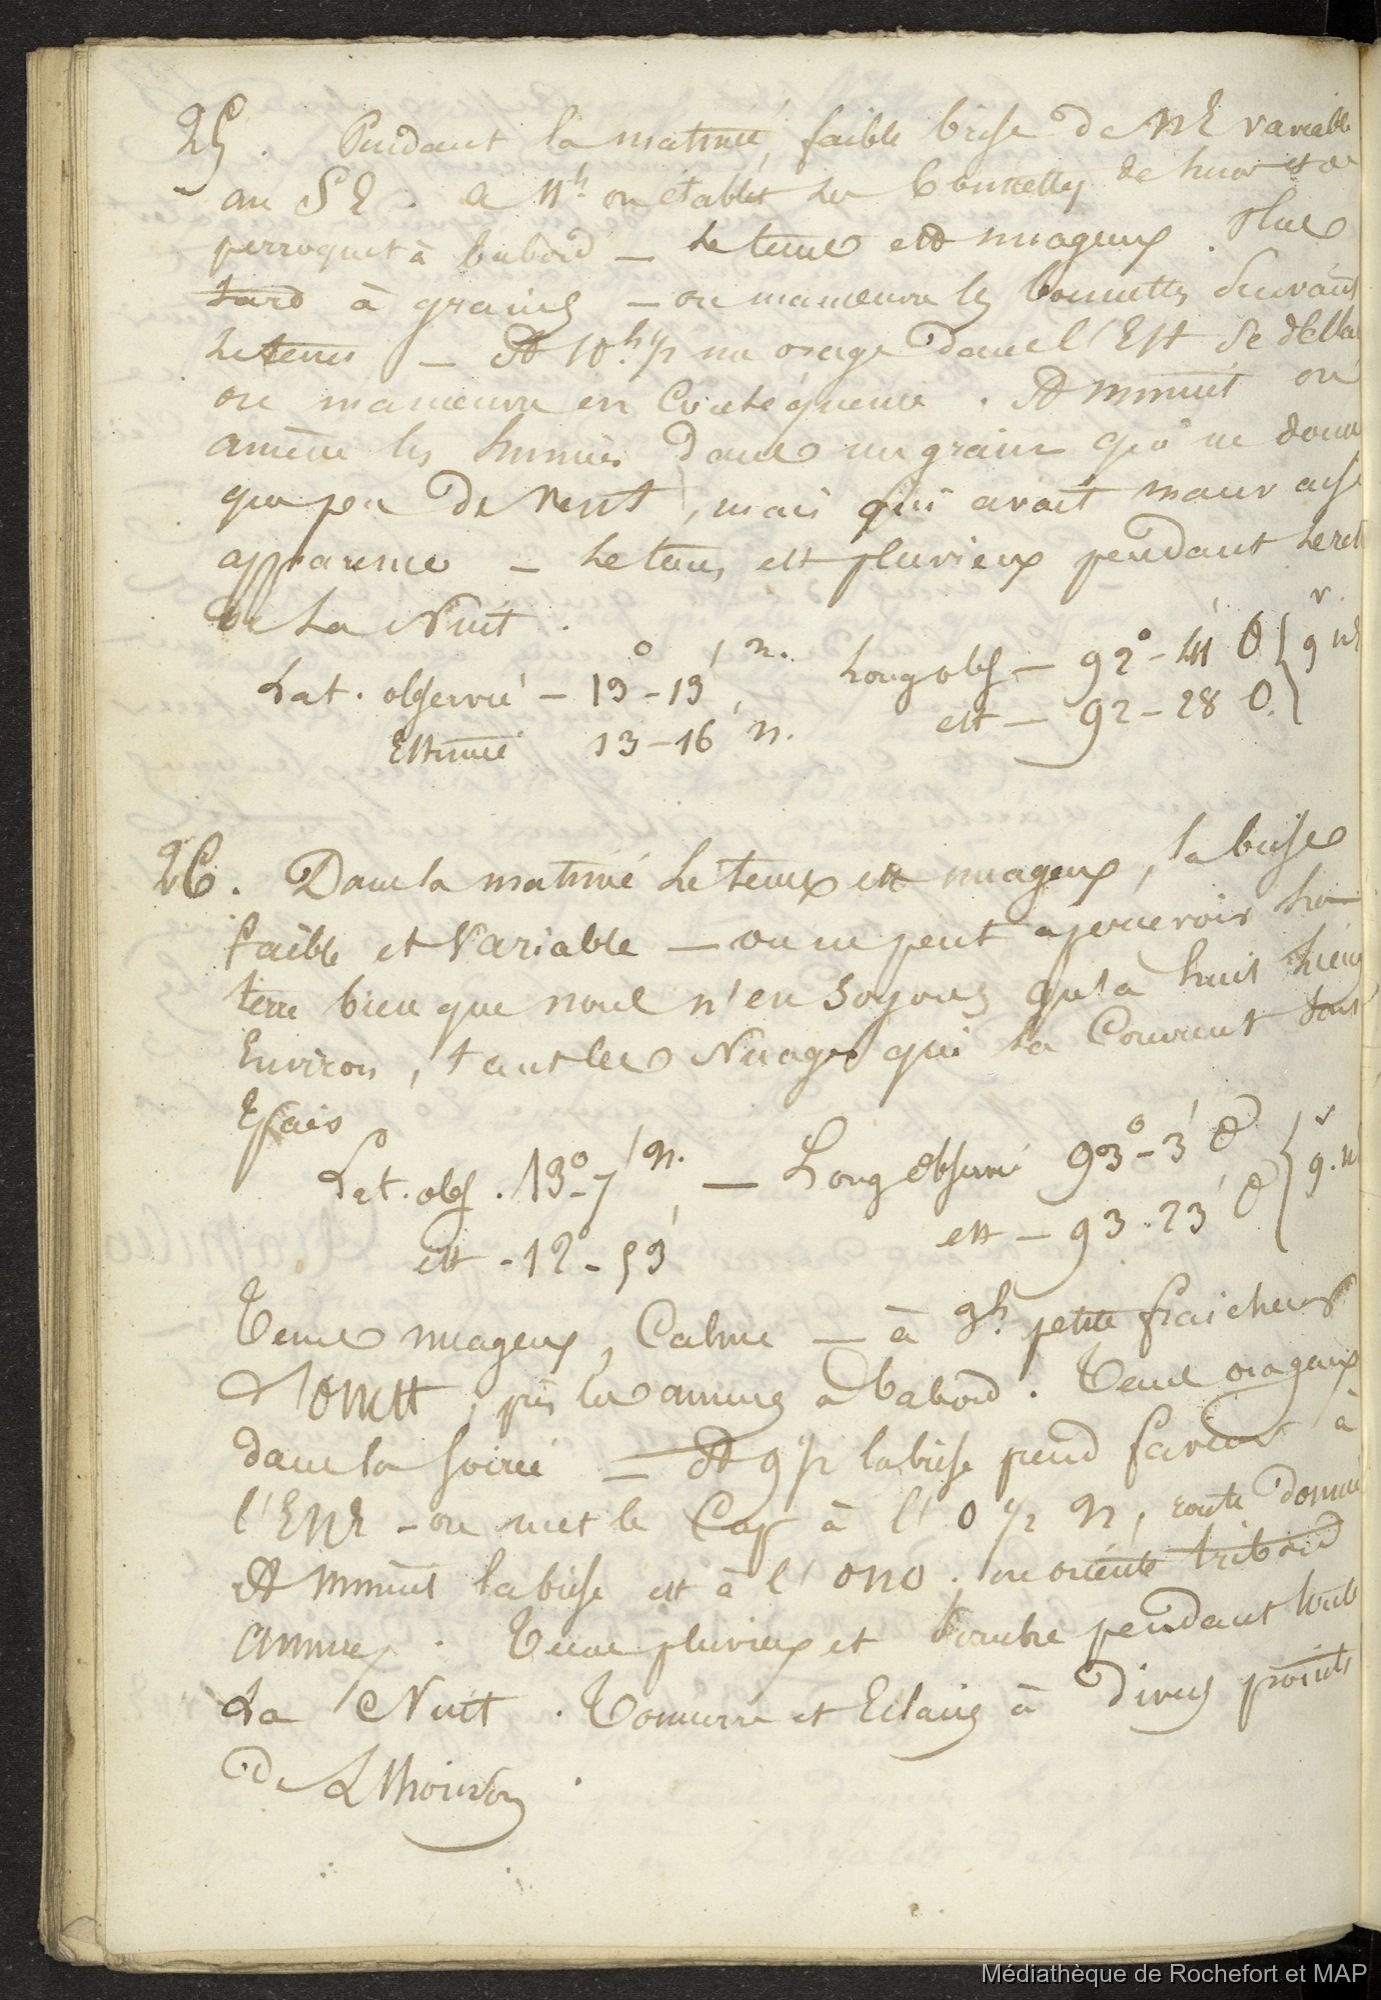 25. Pendant la matinée, faible brise de NE variable
au SE. a 11h on établit les bonnettes de hune et de
perroquet à babord – Le tems est nuageux. Plus
tard à grains – on manœuvre les bonnettes suivant
le tems – A 10.h 1/2 un orage dans l'Est se déclare
on manœuvre en conséquence. A minuit on
amène les huniers dans un grain qui ne donne
que peu de vent, mais qui avait mauvaise
apparence – Le tems est pluvieux pendant le reste
de La Nuit.
Lat. observée – 13°-13' N. Long obs – 92°-41' O } v
Estimée 13-16' N. est – 92-28 O. } 9 NE
26. Dans la matinée Le tems est nuageux, la brise
faible et variable – on ne peut apercevoir la
terre bien que nous n'en soyons qu'à huit lieues
Environ, tant les Nuages qui la Couvrent sont
Epais
Lat. obs. 13°-7' N. – Long observée 93°-3' O } v
est - 12°-59' est – 93-23' O } 9. N
Tems nuageux, Calme – à 9h. petite fraicheur
d'Ouest, pris les amures à Babord. Tems orageux
dans la soirée – A 9 1/2 la brise prend faveur à
l'ENE – on met le Cap à l'O 1/2 N, route donnée
A minuit la brise est à l'ONO; on oriente tribord
amures. Tems pluvieux et sombre pendant toute
La Nuit. Tonnerre et Eclairs à divers points
de L'Horizon.
Médiathèque de Rochefort et MAP